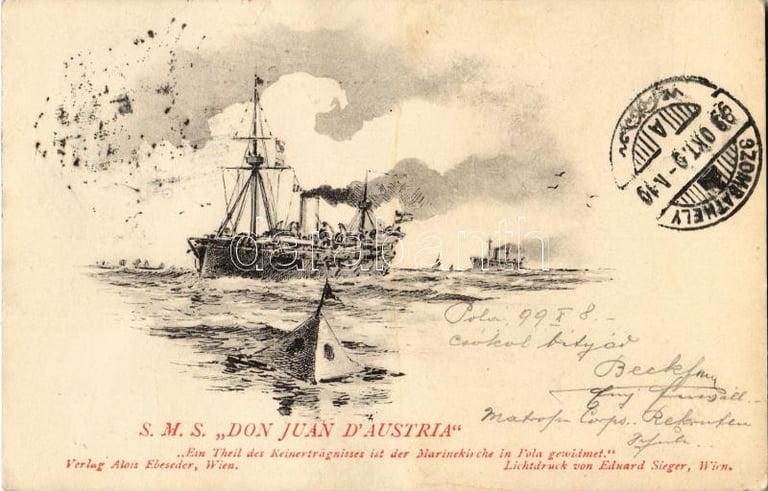 99 OKT. 9
SZOMBATHELY
darabanth
Pola, 99 X 8. –
csókol bátyád
Matrosen Corps. Rekruten
Schule
S. M. S. „DON JUAN D'AUSTRIA“
„Ein Theil des Reinerträgnisses ist der Marinekirche in Pola gewidmet.“
Verlag Alois Ebeseder, Wien. Lichtdruck von Eduard Sieger, Wien.